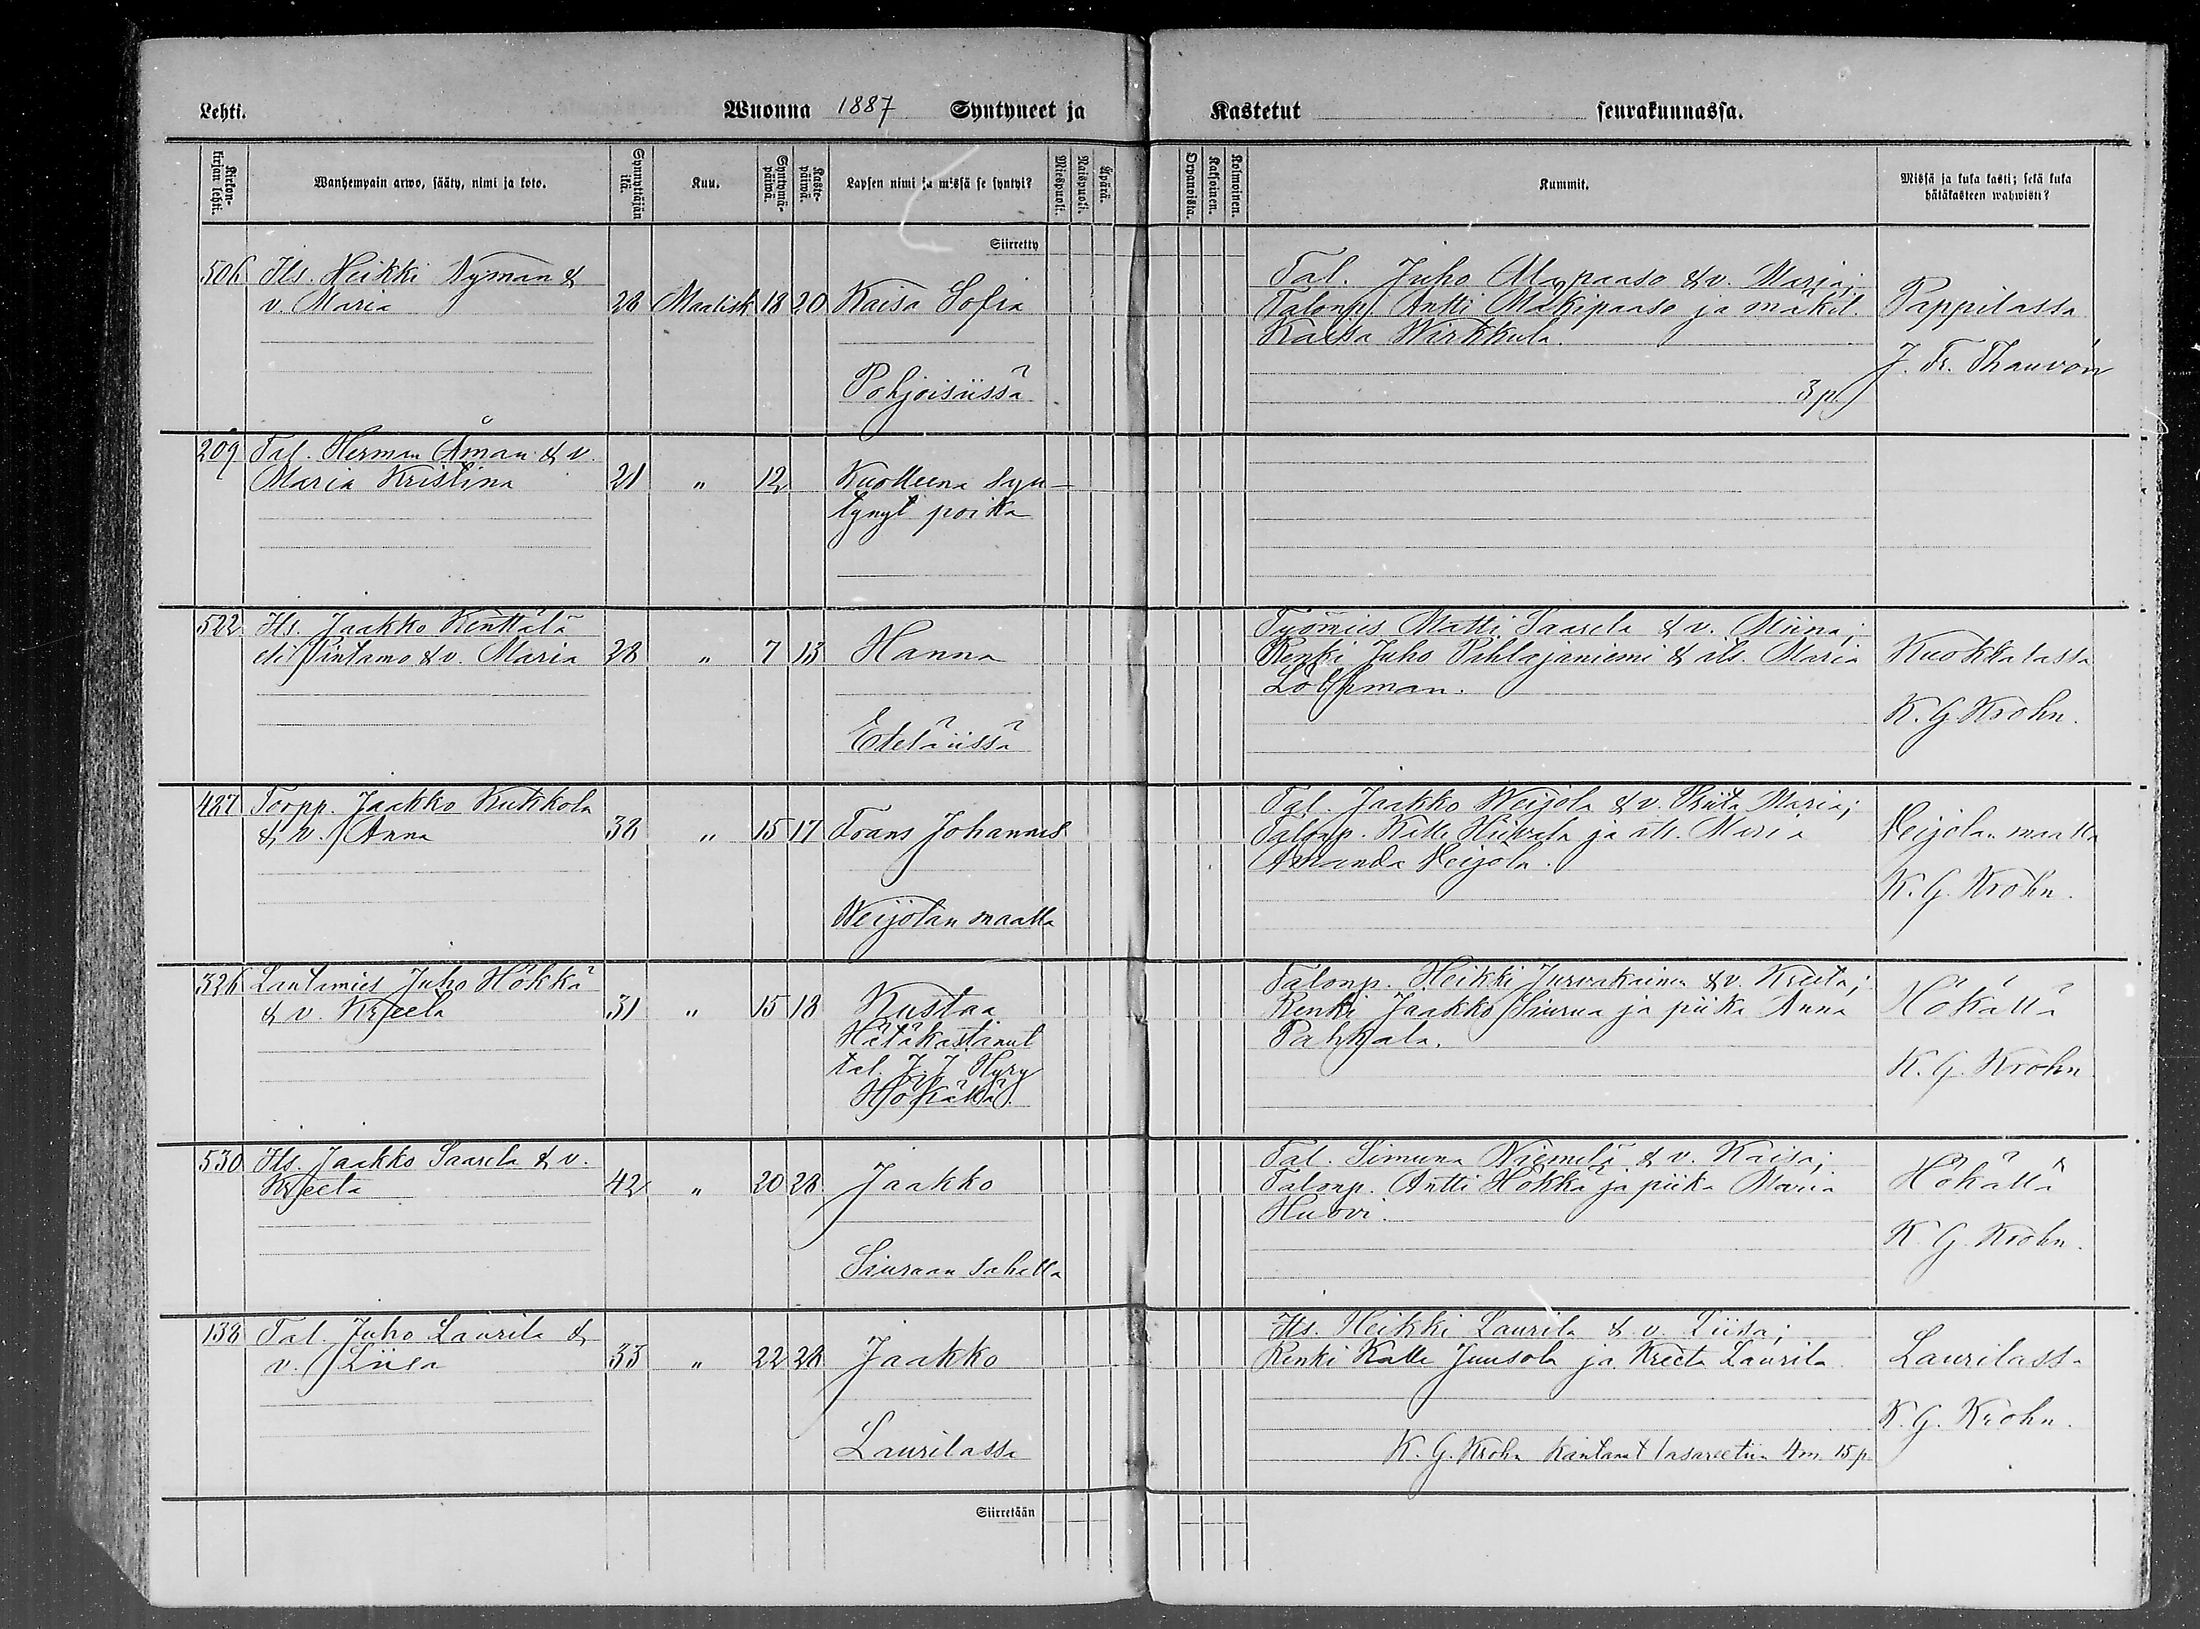 Lehti. Wuonna 1887 Syntyneet ja Kastetut seurakunnassa.
Kirkonkirjan lehti. Wanhempain arwo, sääty, nimi ja koto. Synnyttäjän ikä. Kuu. Syntymäpäiwä. Kastepäiwä. Lapsen nimi ja missä se syntyi? Miespuoli. Naispuoli. Äpärä. Orpanoista. Kaksoinen. Kolmoinen. Kummit. Missä ja kuka kasti; sekä kuka hätäkasteen wahwisti?
Siirretty
506 Its. Heikki Nyman &
v. Maria 28 Maalisk 18 20 Kaisa Sofia
Pohjoisiissä
Tal. Juho Alapaaso & v. Maria;
Talonp. Antti Mäkipaaso ja mäkit.
Kaisa Wirkkula.
3 p.
Pappilassa
J. Fr. Thauvón
209 Tal. Herman Åman & v.
Maria Kristina 21 " 12 Kuolleena syn-
tynyt poika
522 Its. Jaakko Kenttälä
eli Pintamo & v. Maria 28 " 7 13 Hanna
Eteläiissä
Työmies Matti Saarela & v. Miina;
Renki Juho Pihlajaniemi & its. Maria
Löthman.
Kuokkalassa
K. G. Krohn.
427 Torpp. Jaakko Kukkola
& v. Anna 38 " 15 17 Frans Johannes
Weijolan maalla
Tal. Jaakko Weijola & v. Priita Maria;
Talonp. Kalle Hiivala ja its. Maria
Amanda Veijola.
Veijolan maalla
K. G. Krohn.
326 Lautamies Juho Hökkä
& v. Kreeta 31 " 15 18 Kustaa
Hätäkastanut
tal. J. J. Hyry
Hökällä.
Talonp. Heikki Jurvakainen & v. Kreeta;
Renki Jaakko Siurua ja piika Anna
Pahkala.
Hökällä
K. G. Krohn
530 Its. Jaakko Saarela & v.
Kreeta 42 " 20 28 Jaakko
Siuruan sahalla
Tal. Simuna Niemelä & v. Kaisa;
Talonp. Antti Hökkä ja piika Maria
Huovi.
Hökällä
K. G. Krohn.
138 Tal. Juho Laurila &
v. Liisa 33 " 22 28 Jaakko
Laurilassa
Its. Heikki Laurila & v. Liisa;
Renki Kalle Juusola ja Kreeta Laurila
K. G. Krohn kantanut lasareetiin 4 m. 15 p.
Laurilassa
K. G. Krohn.
Siirretään